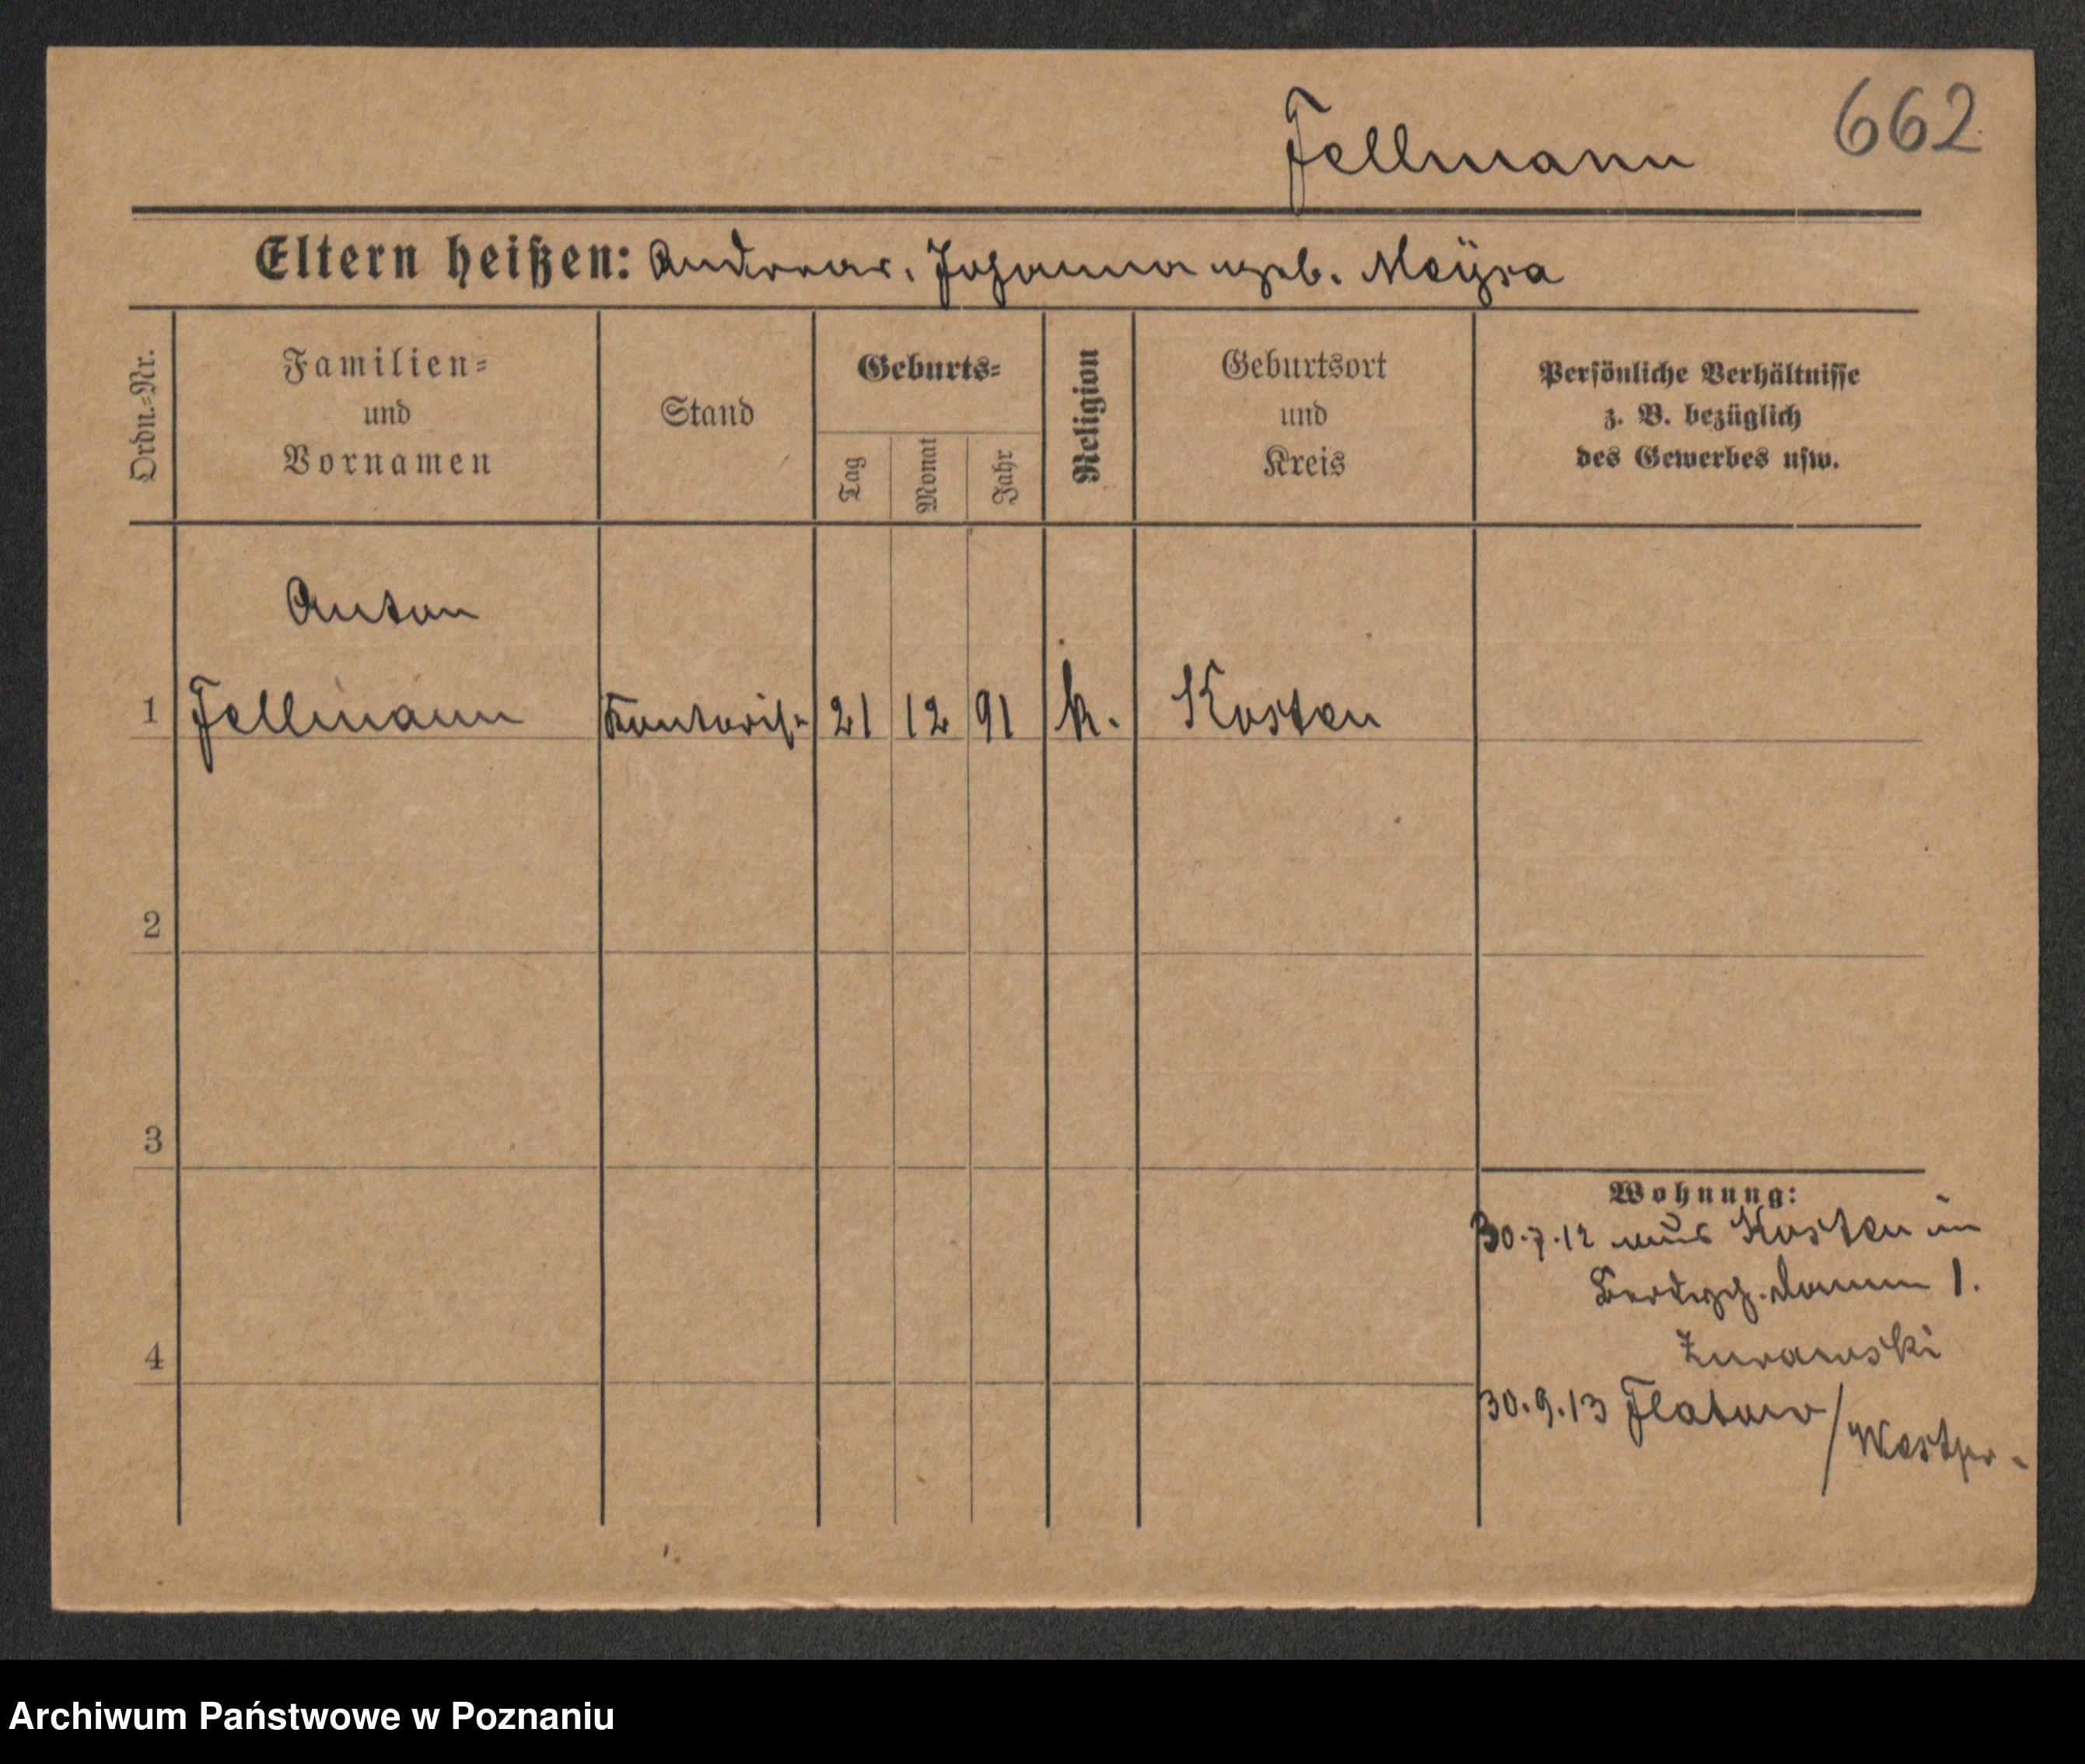 Fellmann 662
Eltern heißen: Andreas, Johanna geb. Meyza
Ordn.=Nr.
Familien=
und
Vornamen
Stand
Geburts=
Tag
Monat
Jahr
Religion
Geburtsort
und
Kreis
Persönliche Verhältnisse
z. B. bezüglich
des Gewerbes usw.
Anton
1 Fellmann Kontorist 21 12 91 k. Kosten
2
3
Wohnung:
30.7.12 aus Kosten in
1.
4 Zurawski
30.9.13 Flatow/Westpr.
Archiwum Państwowe w Poznaniu